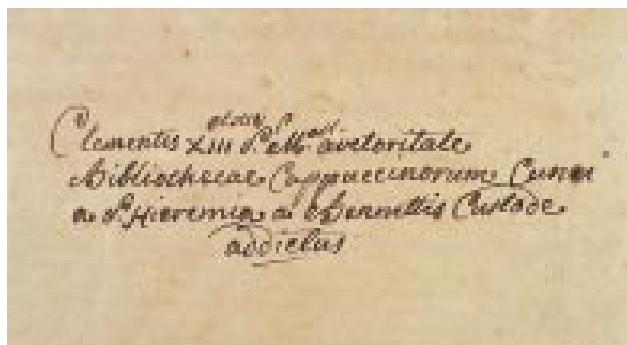 Clementis XIII P. M. auctoritate
Bibliothecae Cappuccinorum Cunei
a P. Hieremia a Bernettis Custode
addictus